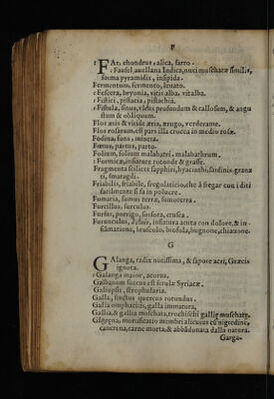 F
FAr, chondrus, alica, farro.
Faufel, auellana Indica, nuci muschatæ similis,
forma pyramidis, insipida.
Fermentum, fermento, leuato.
Fescera, bryonia, vitis alba, vitalba.
Fistici, pistacia, pistachia.
Fistula, sinus, vlcus profundum & callosum, & angu
stum & obliquum.
Flos æris & viride æris, ærugo, verderame.
Flos rosarum, est pars illa crocea in medio rosæ.
Fodina, fons, minera.
Fœtus, partus, parto.
Folium, folium malabatri, malabathrum.
Formicæ, infiature rotonde & grasse.
Fragmenta scilicet sapphiri, hyacinthi, sardinis, grana
ti, smaragdi.
Friabilis, fristabile, sregolatitio, che à fregar con i diti
facilmente si fa in poluere.
Fumaria, fumus terræ, fumoterra.
Furcillus, surculus.
Furfur, porrigo, forfora, crusca.
Furunculus, infiatura acuta con dolore, & in
fiamatione, brusculo, brofula, bugnone, chiazone.
G
GAlanga, radix notissima, & sapore acri, Græcis
ignota.
Galanga maior, acorus.
Galbanum succus est ferulæ Syriacæ.
Galiopsis, scrophularia.
Galla, fructus quercus rotundus.
Galla omphacitis, galla immatura.
Gallia, & gallia muschata, trochischi galliæ muschatæ.
Gangrena, mortificatio membri alicuius cū nigredine,
cancrena, carne morta, & abbādonata dalla natura.
Garga-